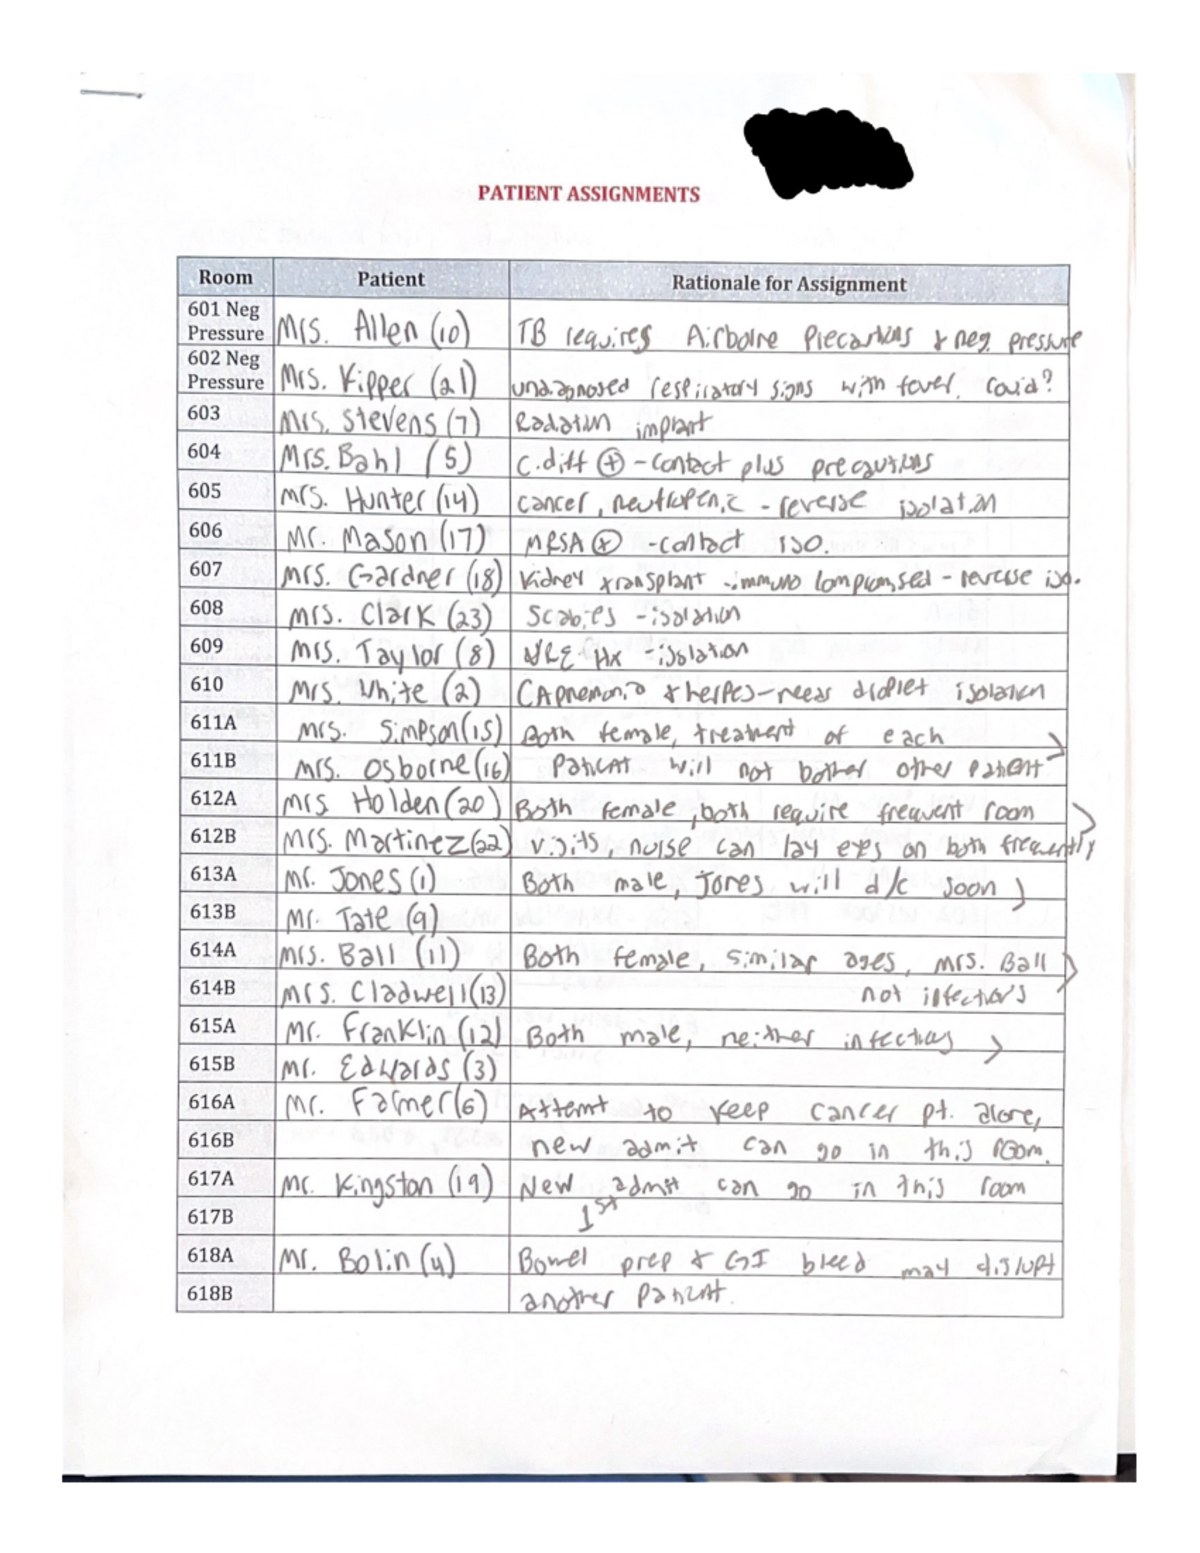 PATIENT ASSIGNMENTS
Room Patient Rationale for Assignment
601 Neg Pressure Mrs. Allen (10) TB requires Airborne Precautions & neg. pressure
602 Neg Pressure Mrs. Kipper (21) undiagnosed respiratory signs with fever. Covid?
603 Mrs. Stevens (7) Radiation implant
604 Mrs. Bahl (5) C.diff ⊕ - contact plus precautions
605 Mrs. Hunter (14) cancer, neutropenic - reverse isolation
606 Mr. Mason (17) MRSA ⊕ - contact iso.
607 Mrs. Gardner (18) Kidney transplant - immuno compromised - reverse iso.
608 Mrs. Clark (23) Scabies - isolation
609 Mrs. Taylor (8) VRE Hx - isolation
610 Mrs. White (2) CA pnemonia & herpes - needs droplet isolation
611A Mrs. Simpson (15) Both female, treatment of each
611B Mrs. Osborne (16) patient will not bother other patient
612A Mrs. Holden (20) Both female, both require frequent room
612B Mrs. Martinez (22) visits, nurse can lay eyes on both frequently
613A Mr. Jones (1) Both male, Jones will d/c soon
613B Mr. Tate (9)
614A Mrs. Ball (11) Both female, similar ages, Mrs. Ball
614B Mrs. Cladwell (13) not infectious
615A Mr. Franklin (12) Both male, neither infectious
615B Mr. Edwards (3)
616A Mr. Farmer (6) Attemt to keep cancer pt. alone,
616B new admit can go in this room.
617A Mr. Kingston (19) New admit can go in this room
617B 1st
618A Mr. Bolin (4) Bowel prep & GI bleed may disrupt
618B another patient.